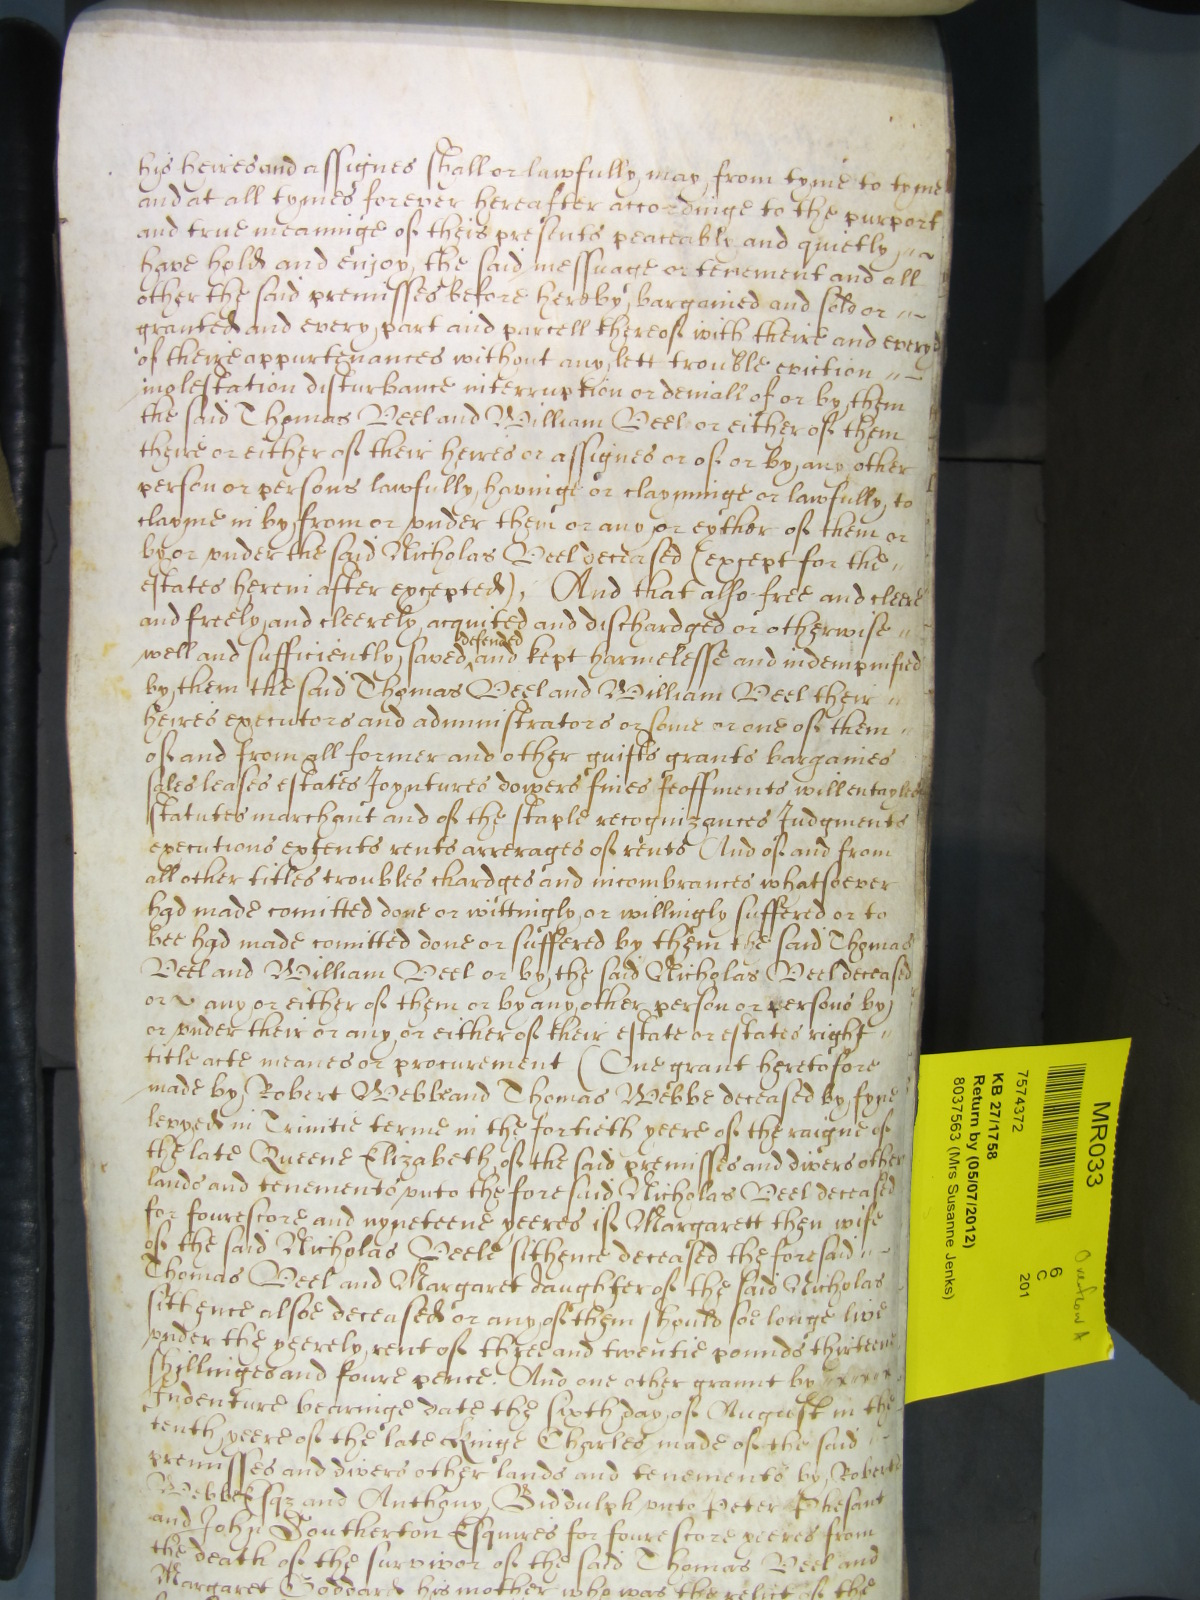 his heires and assignes shall or lawfully may from tyme to tyme
and at all tymes forever hereafter accordinge to the purport
and true meaninge of theis presents peaceably and quietly
have hold and enjoy the said messuage or tenement and all
other the said premisses before hereby bargained and sold or
granted and every part and parcell thereof with theire and every
of theire appurtenances without any lett trouble eviction
molestation disturbance interruption or deniall of or by them
the said Thomas Veel and William Veel or either of them
theire or either of their heires or assignes or of or by any other
person or persons lawfully havinge or clayminge or lawfully to
clayme in by from or under them or any or eyther of them or
by or under the said Nicholas Veel deceased (except for the
estates herein after excepted), And that also free and cleere
and freely and cleerely acquited and dischardged or otherwise
defended
well and sufficiently saved and kept harmelesse and indempnified
by them the said Thomas Veel and William Veel their
heires executors and administrators or some or one of them
of and from all former and other guifts grants bargaines
sales leases estates Joyntures dowers fines feoffments will entayles
statutes marchant and of the staple recognizances Judgments
executions extents rents arrerages of rents And of and from
all other titles troubles chardges and incombrances whatsoever
had made comitted done or wittingly or willingly suffered or to
bee had made comitted done or suffered by them the said Thomas
Veel and William Veel or by the said Nicholas Veel deceased
or any or either of them or by any other person or persons by
or under their or any or either of their estate or estates right
title acte meanes or procurement (One grant heretofore
made by Robert Webbe and Thomas Webbe deceased by fyne
levyed in Trinitie terme in the fortieth yeere of the raigne of
the late Queene Elizabeth of the said premisses and divers other
lands and tenements unto the foresaid Nicholas Veel deceased
for fourescore and nyneteene yeeres if Margarett then wife
of the said Nicholas Veele sithence deceased the foresaid
Thomas Veel and Margaret daughter of the said Nicholas
sithence alsoe deceased or any of them should soe longe live
under the yeerely rent of three and twentie pounds thirteene
shillinges and foure pence. And one other graunt by
Indenture bearinge date the sixth day of August in the
tenth yeere of the late Kinge Charles made of the said
premisses and divers other lands and tenements by Robert
Webbe Esqz and Anthony Biddulph unto Peter Phesant
and John Southerton Esquires for fourescore yeeres from
the death of the survivor of the said Thomas Veel and
Margaret Goddard his mother who was the relict of the
MR033
7574372
KB 27/1758
Return by (05/07/2012)
8037563 (Mrs Susanne Jenks)
6
C
201